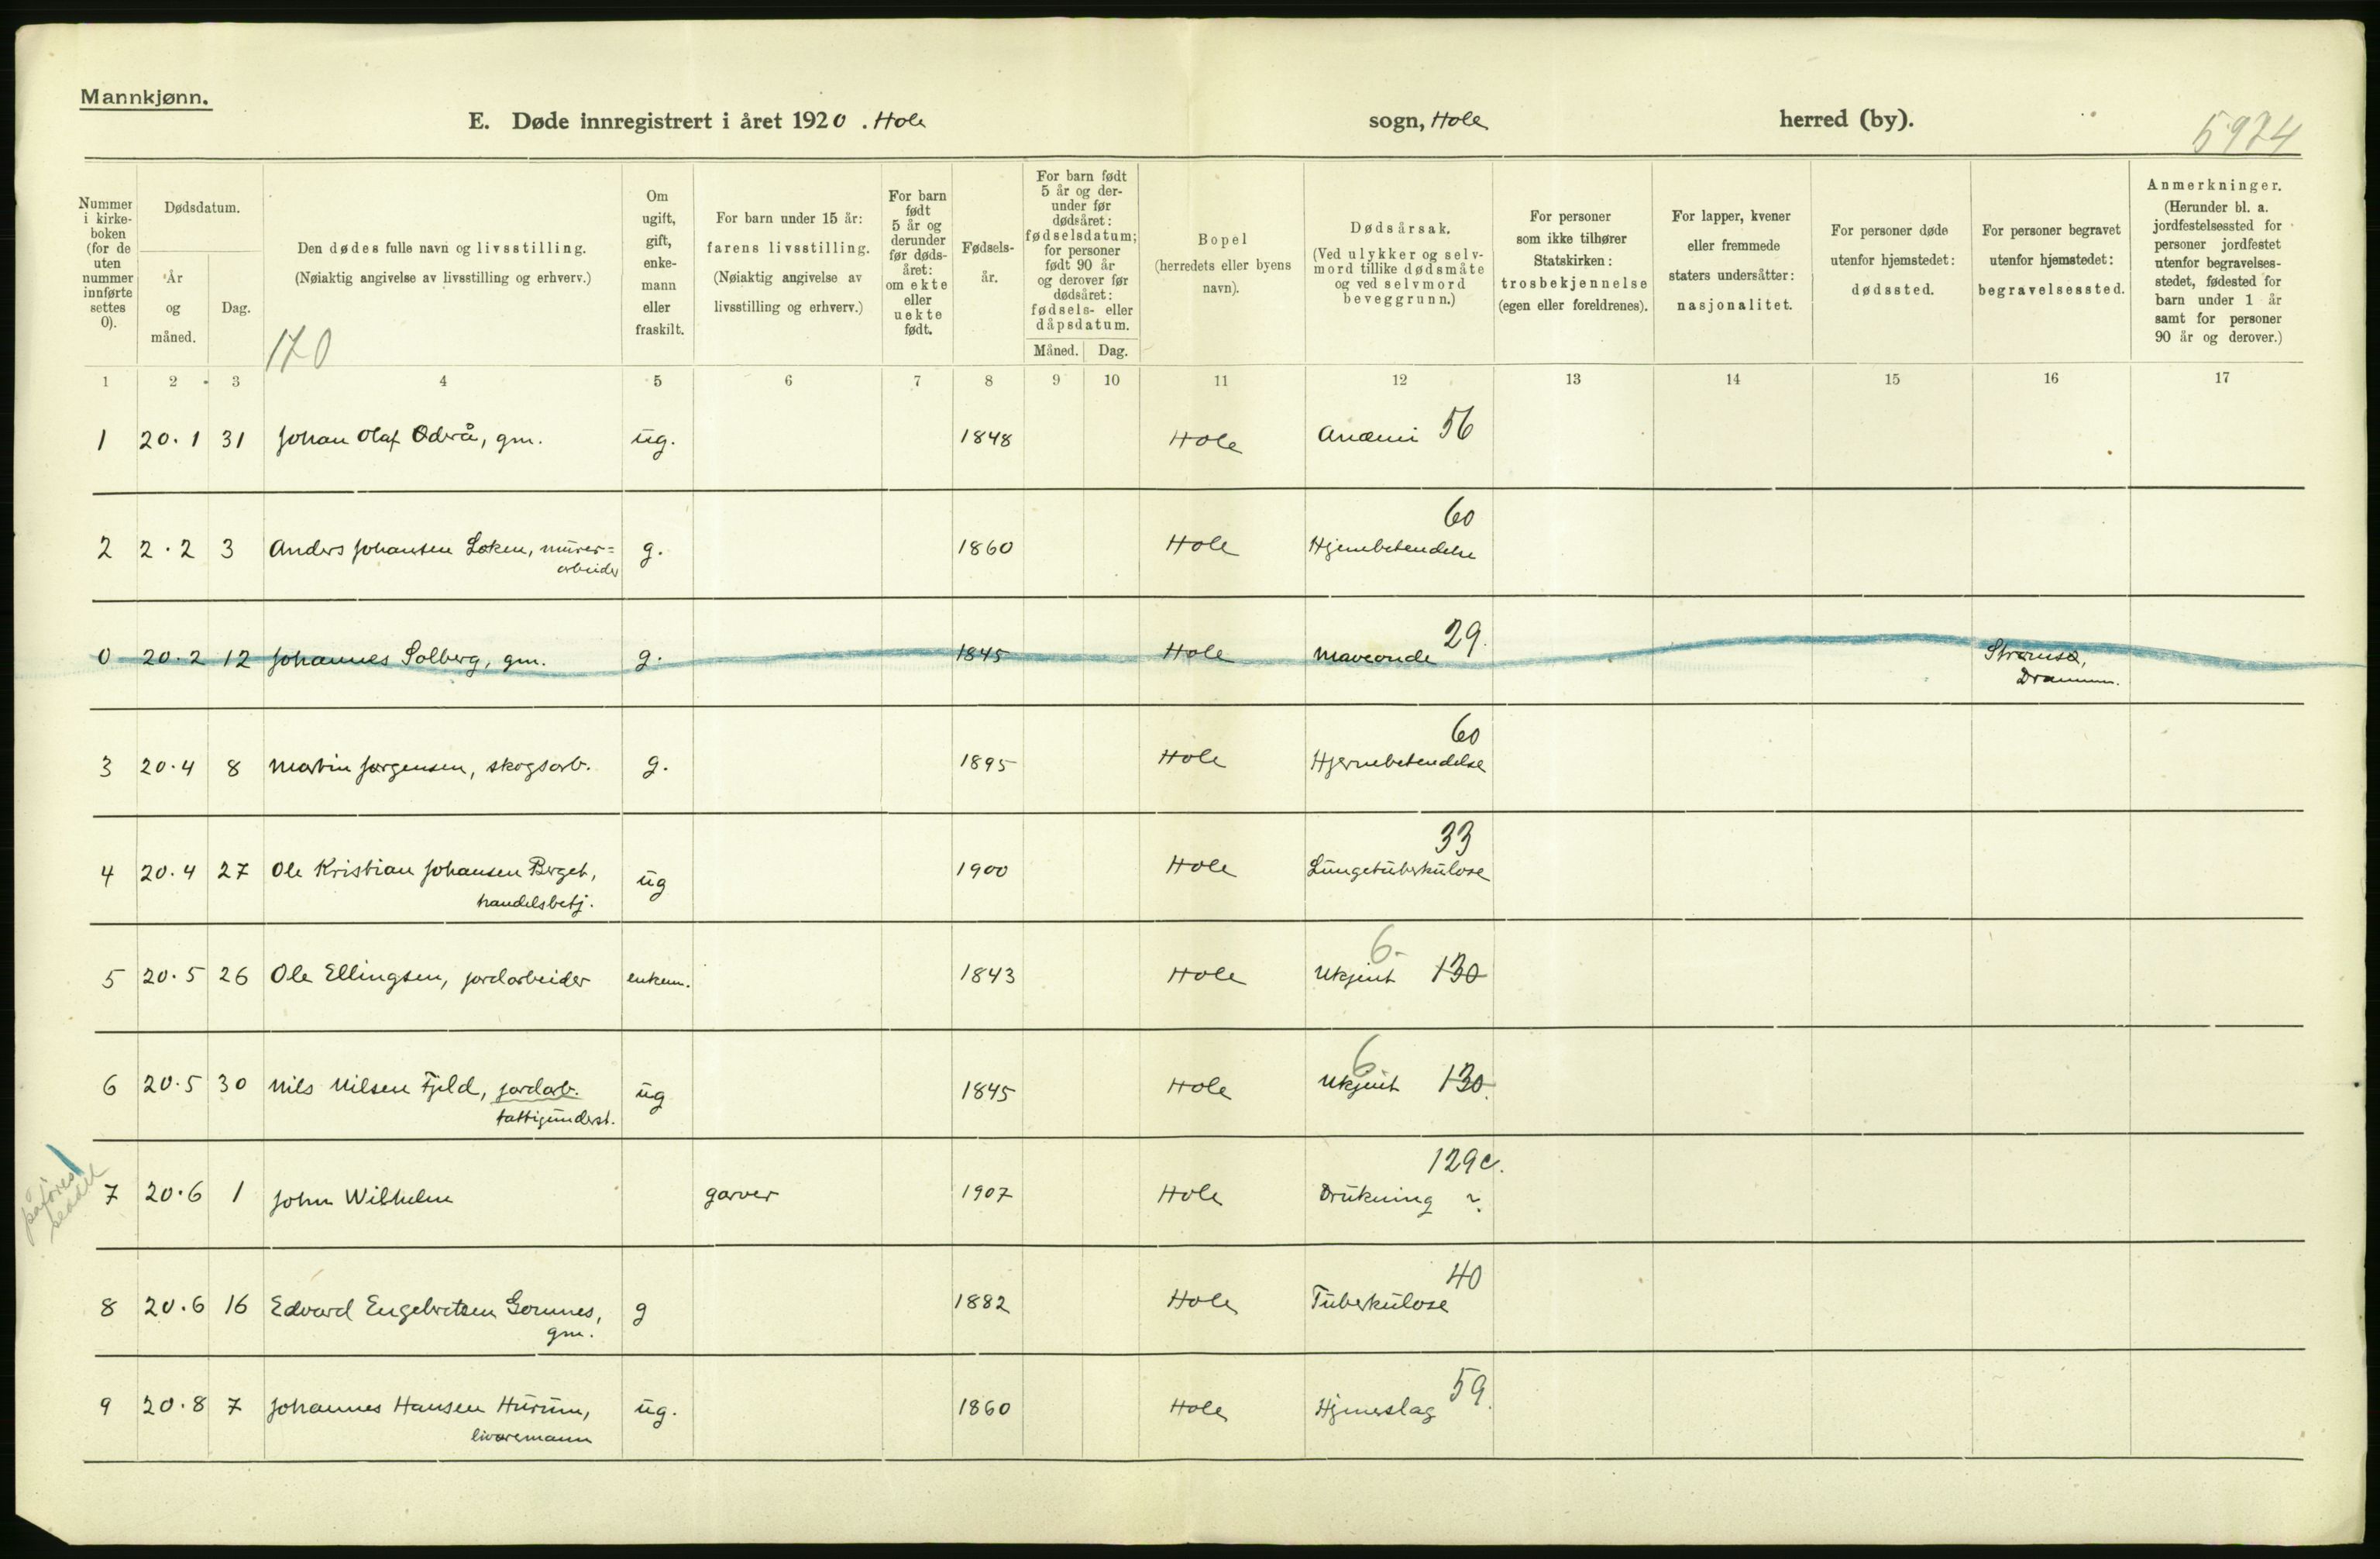 Mannkjønn.
E. Døde innregistrert i året 1920 . Hole sogn, Hole herred (by).
5924
Nummer i kirke-boken (for de uten nummer innførte settes 0).
Dødsdatum.
År og måned.
Dag.
Den dødes fulle navn og livsstilling.
(Nøiaktig angivelse av livsstilling og erhverv.)
170
Om ugift, gift, enke-mann eller fraskilt.
For barn under 15 år:
farens livsstilling.
(Nøiaktig angivelse av livsstilling og erhverv.)
For barn født 5 år og derunder før døds-året: om ekte eller uekte født.
Fødsels-år.
For barn født 5 år og der-under før dødsåret: fødselsdatum; for personer født 90 år og derover før dødsåret: fødsels- eller dåpsdatum.
Måned. Dag.
Bopel
(herredets eller byens navn).
Dødsårsak.
(Ved ulykker og selv-mord tillike dødsmåte og ved selvmord beveggrunn.)
For personer som ikke tilhører Statskirken: trosbekjennelse (egen eller foreldrenes).
For lapper, kvener eller fremmede staters undersåtter: nasjonalitet.
For personer døde utenfor hjemstedet: dødssted.
For personer begravet utenfor hjemstedet: begravelsessted.
Anmerkninger.
(Herunder bl. a. jordfestelsessted for personer jordfestet utenfor begravelses-stedet, fødested for barn under 1 år samt for personer 90 år og derover.)
1 2 3 4 5 6 7 8 9 10 11 12 13 14 15 16 17
1 20.1 31 Johan Olaf Oderå, gm. ug. 1848 Hole Anæmi 56
60
2 2.2 3 Anders Johansen Løken, murer= g. 1860 Hole Hjernebetendelse
arbeider
29.
0 20.2 12 Johannes Solberg, gm. g. 1845 Hole Maveonde Strømsø,
Drammen.
60
3 20.4 8 Martin Jørgensen, skogsarb. g. 1895 Hole Hjernebetendelse
33
4 20.4 27 Ole Kristian Johansen Berget, ug 1900 Hole Lungetuberkulose
handelsbetj.
6-
5 20.5 26 Ole Ellingsen, jordarbeider enkem. 1843 Hole Ukjent 130
6
6 20.5 30 Nils Nilsen Fjeld, jordarb. ug 1845 Hole Ukjent 130.
fattigunderst.
129c.
påføres seddel
7 20.6 1 John Wilhelm garver 1907 Hole Drukning ?
40
8 20.6 16 Edvard Engebretsen Gomnes, g 1882 Hole Tuberkulose
gm.
59.
9 20.8 7 Johannes Hansen Hurum, ug. 1860 Hole Hjerneslag
livøremann